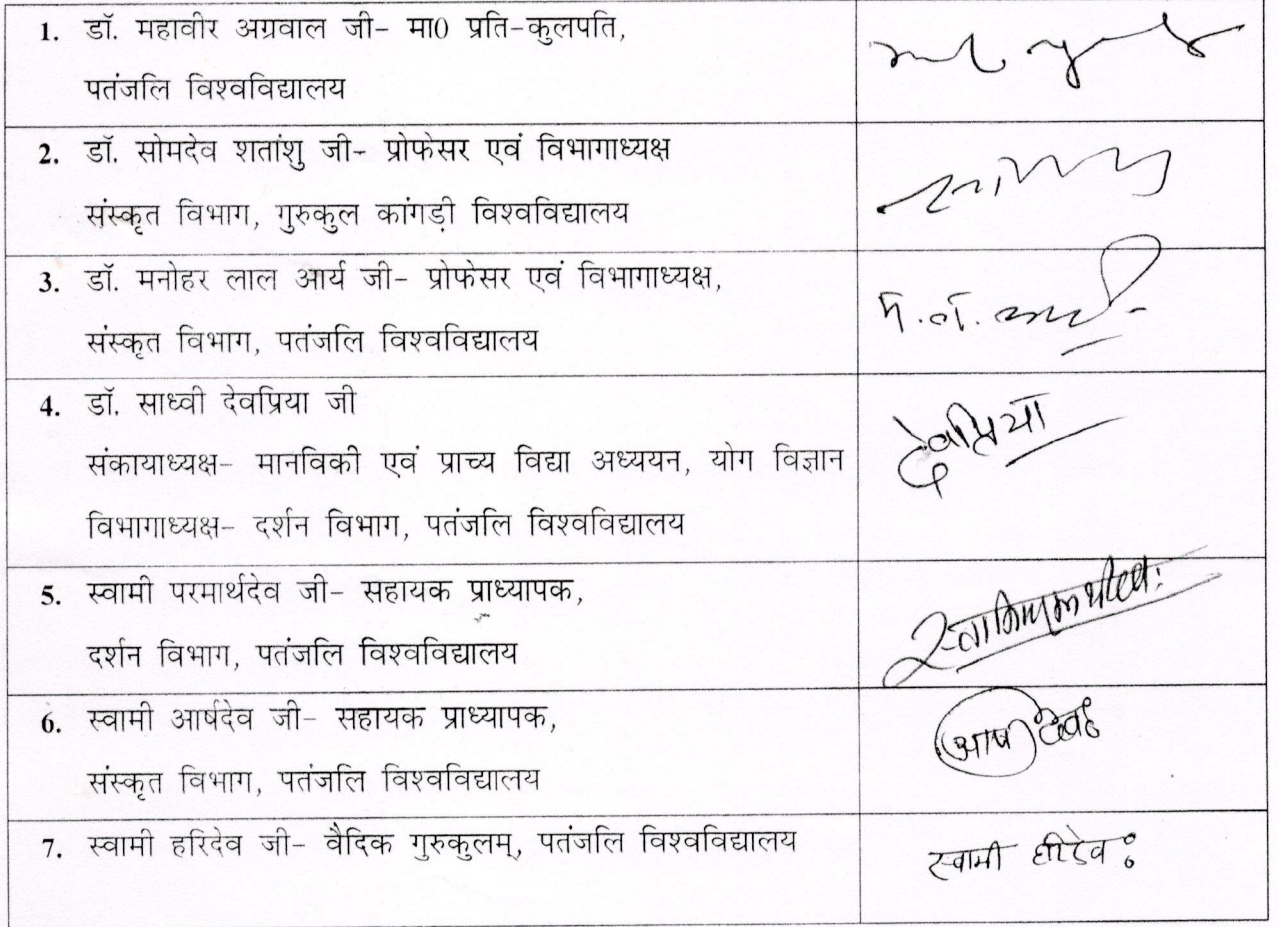 1. डॉ. महावीर अग्रवाल जी- मा0 प्रति-कुलपति,
पतंजलि विश्वविद्यालय
2. डॉ. सोमदेव शतांशु जी- प्रोफेसर एवं विभागाध्यक्ष
संस्कृत विभाग, गुरुकुल कांगड़ी विश्वविद्यालय
3. डॉ. मनोहर लाल आर्य जी- प्रोफेसर एवं विभागाध्यक्ष,
संस्कृत विभाग, पतंजलि विश्वविद्यालय
4. डॉ. साध्वी देवप्रिया जी
देवप्रिया
संकायाध्यक्ष- मानविकी एवं प्राच्य विद्या अध्ययन, योग विज्ञान
विभागाध्यक्ष- दर्शन विभाग, पतंजलि विश्वविद्यालय
5. स्वामी परमार्थदेव जी- सहायक प्राध्यापक,
दर्शन विभाग, पतंजलि विश्वविद्यालय
6. स्वामी आर्षदेव जी- सहायक प्राध्यापक,
संस्कृत विभाग, पतंजलि विश्वविद्यालय
7. स्वामी हरिदेव जी- वैदिक गुरुकुलम्, पतंजलि विश्वविद्यालय
स्वामी हरिदेवः